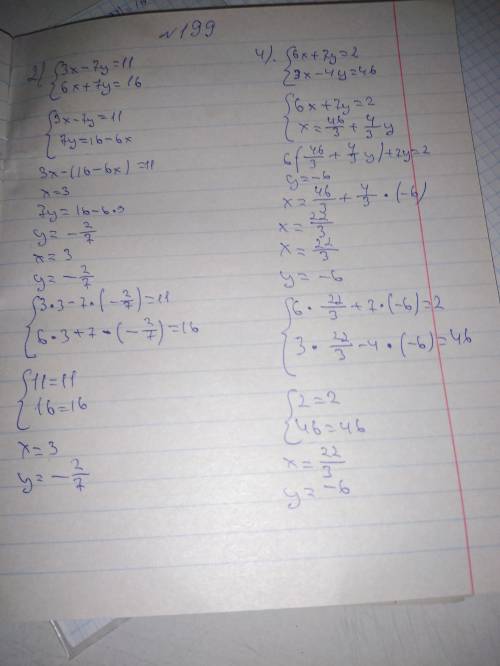 №199
2) {3x-7y=11
6x+7y=16
{3x-7y=11
7y=16-6x
3x-(16-6x)=11
x=3
7y=16-6·3
y=-2/7
x=3
y=-2/7
{3·3-7·(-2/7)=11
6·3+7·(-2/7)=16
{11=11
16=16
x=3
y=-2/7
4). {6x+7y=2
3x-4y=46
{6x+7y=2
x=46/3+4/3y
6(46/3+4/3y)+7y=2
y=-6
x=46/3+4/3·(-6)
x=22/3
x=22/3
y=-6
{6·22/3+7·(-6)=2
3·22/3-4·(-6)=46
{2=2
46=46
x=22/3
y=-6